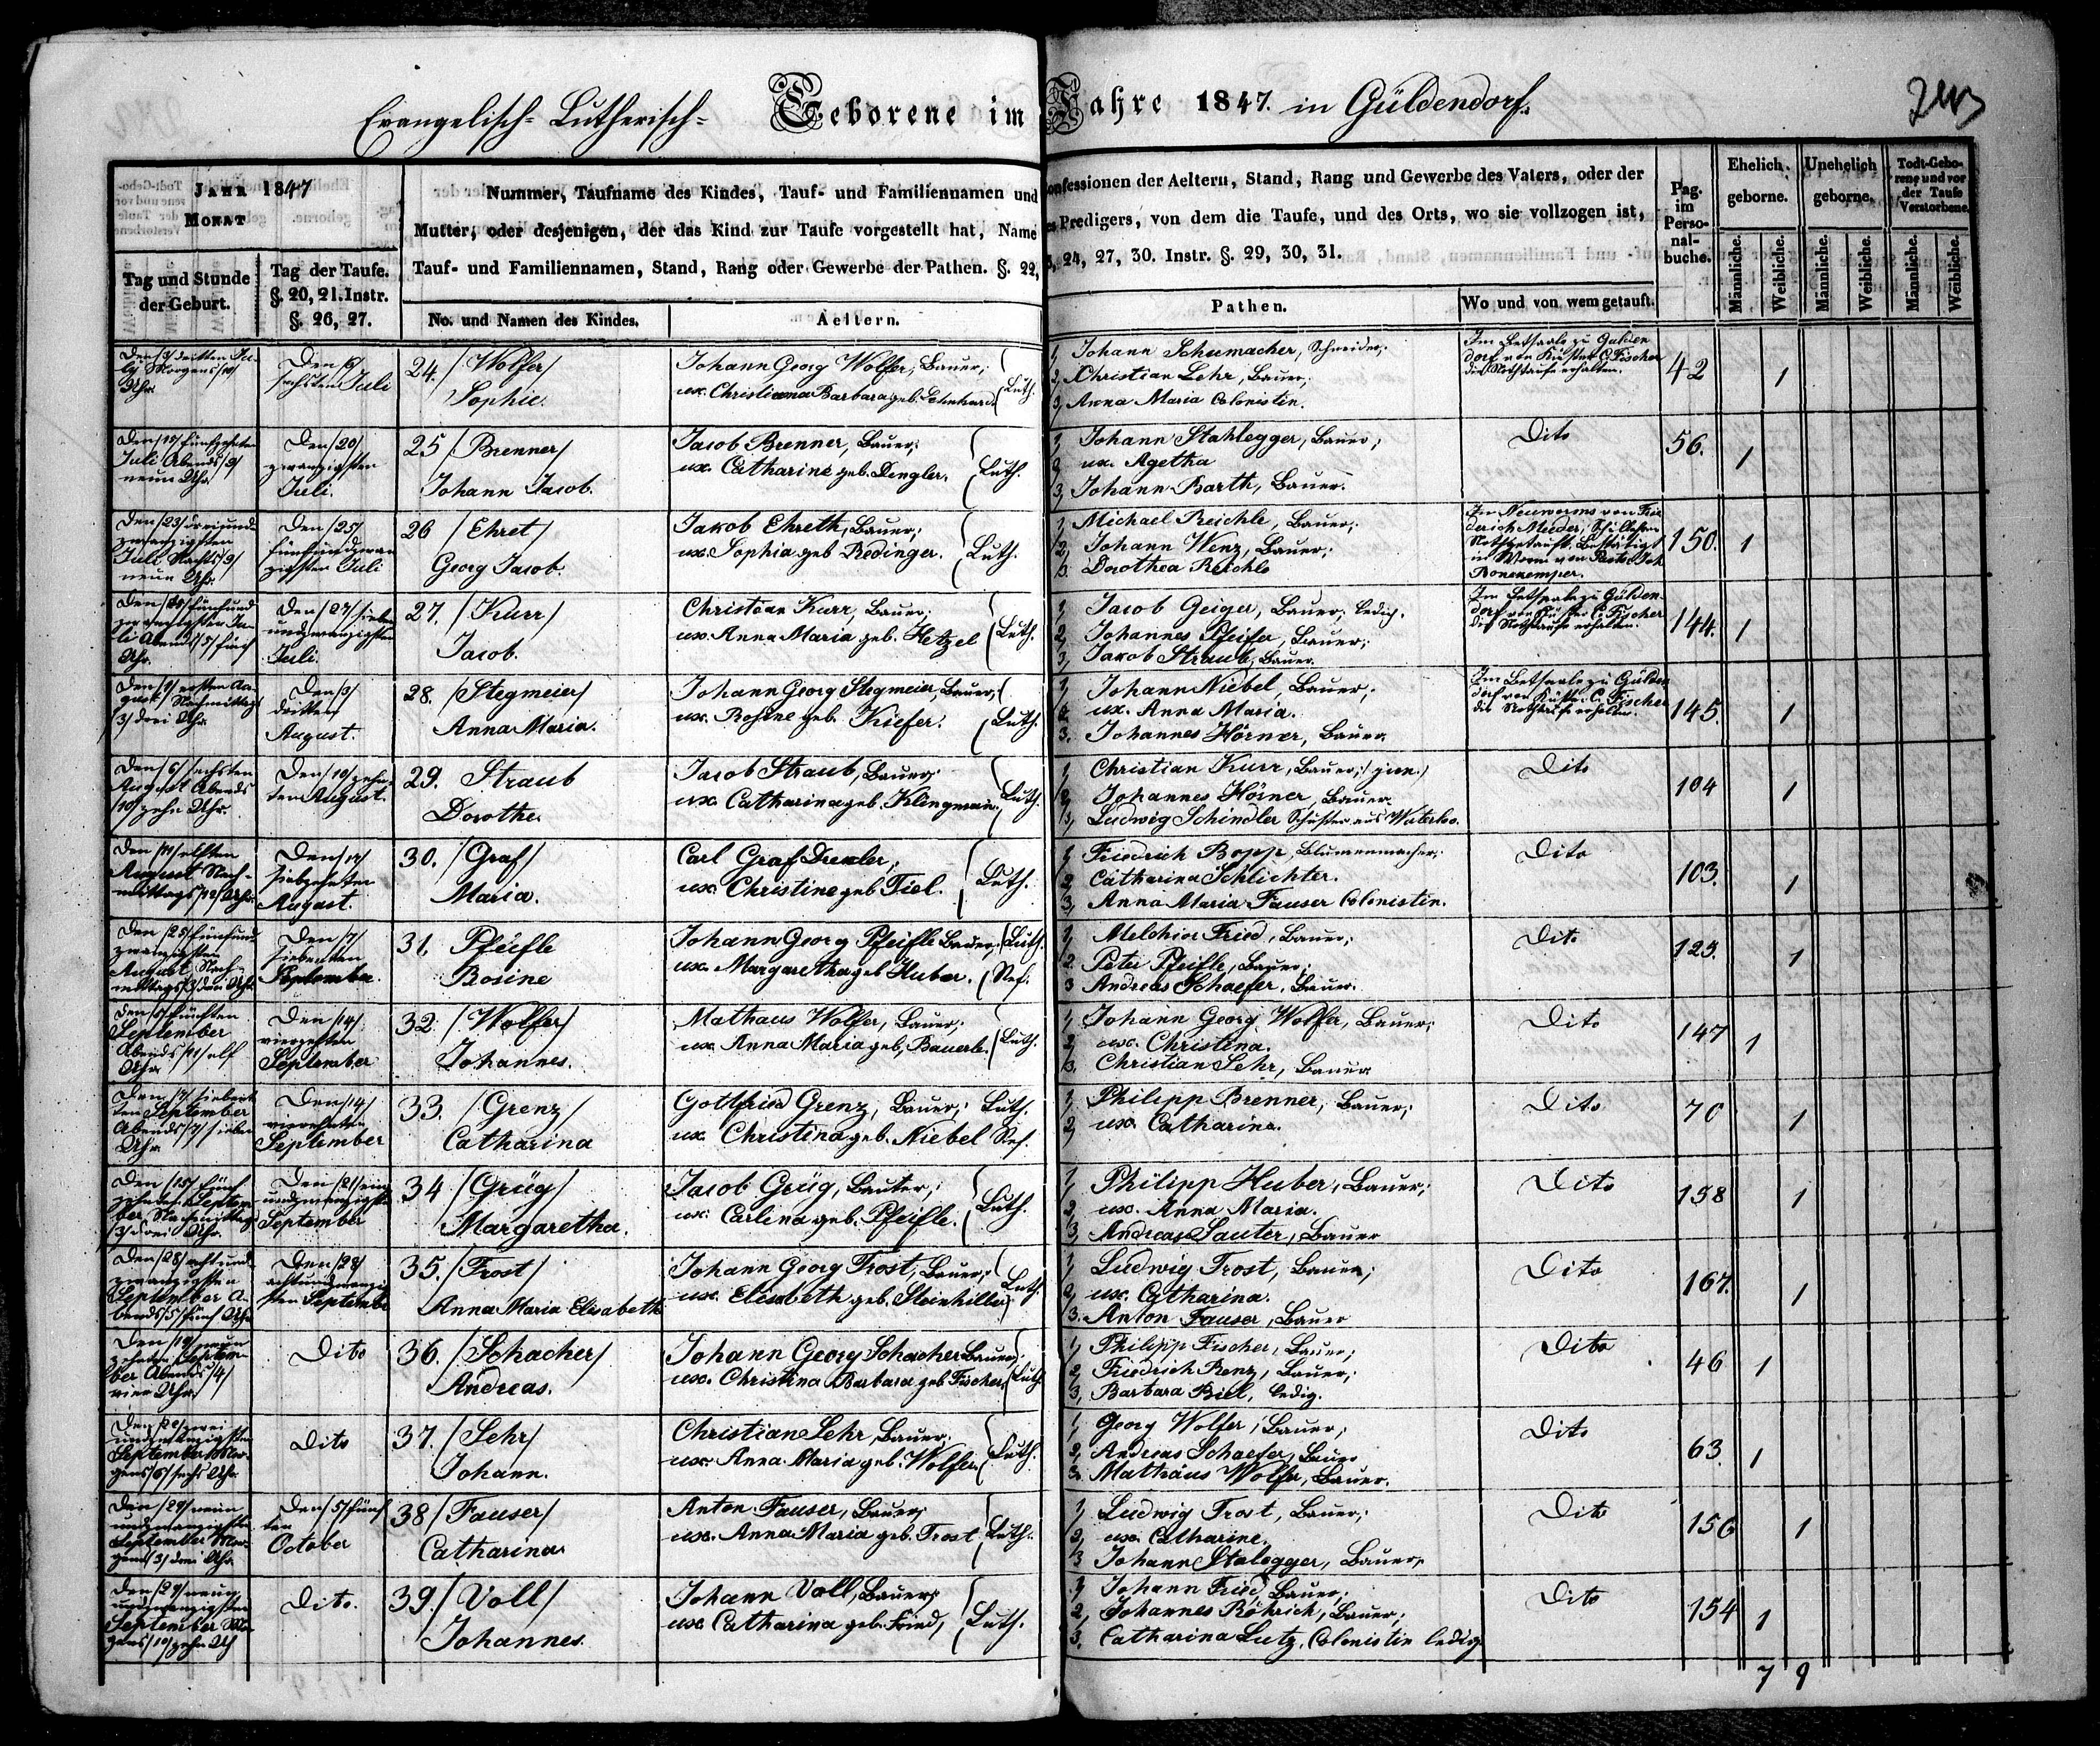 Evangelisch- Lutherisch- Geborene im Jahre 1847. in Güldendorf.
JAHR 1847
MONAT
Tag und Stunde
der Geburt.
Tag der Taufe.
§. 20, 21. Instr.
§. 26, 27.
Nummer, Taufname des Kindes, Tauf- und Familiennamen und
Mutter, oder desjenigen, der das Kind zur Taufe vorgestellt hat, Name
Tauf- und Familiennamen, Stand, Rang oder Gewerbe der Pathen. §. 22,
No. und Namen des Kindes.
Aeltern.
onfessionen der Aeltern, Stand, Rang und Gewerbe des Vaters, oder der
es Predigers, von dem die Taufe, und des Orts, wo sie vollzogen ist,
3, 24, 27, 30. Instr. §. 29, 30, 31.
Pathen.
Wo und von wem getauft.
Pag.
im
Perso-
nal-
buche.
Ehelich
geborne.
Unehelich
geborne.
Todt-Gebo-
rene und vor
der Taufe
Verstorbene.
Männliche.
Weibliche.
Männliche.
Weibliche.
Männliche.
Weibliche.
Den /3/ dritten Ju-
ly Morgens /10/
Uhr.
Den /6/
sechsten Juli
24. /Wolfer/
Sophie.
Johann Georg Wolfer, Bauer;
ux. Christianna Barbara geb. Lehnhard.
Luth.
1, Johann Schumacher, Schneider;
2, Christian Lehr, Bauer;
3, Anna Maria Colonistin.
Im Betsaale zu Gülden
dorf von Küster C. Fischer
die Nothtaufe erhalten.
42
1
Den /15/ fünfzehnten
Juli Abends /9/
neun Uhr.
Den /20/
zwanzigsten
Juli.
25 /Brenner/
Johann Jacob.
Jacob Brenner, Bauer;
ux. Catharine geb. Dengler.
Luth.
1, Johann Stahlegger, Bauer;
2, ux. Agetha
3, Johann Barth, Bauer.
Dito
56.
1
Den /23/ dreiund-
zwanzigsten
Juli Nachts /9/
neun Uhr.
Den /25/
fünfundzwan
zigsten Juli
26 /Ehret/
Georg Jacob.
Jakob Ehreth, Bauer;
ux. Sophia geb Rodinger.
Luth.
1, Michael Reichle, Bauer;
2, Johann Wenz, Bauer;
3. Dorothea Reichle
In Neuworms von Frie
derich Mieder, Schullehrer
Nothgetauft. Bestätigt
in Worms von Pastor Joh
Bonekemper.
150.
1
Den /25/ fünfund
zwanzigsten Ju-
li Abends /5/ fünf
Uhr.
Den /27/ sieben
undzwanzigsten
Juli.
27. /Kurr/
Jacob.
Christian Kurr, Bauer;
ux. Anna Maria geb. Hetzel
Luth.
1, Jacob Geiger, Bauer, ledig.
2, Johannes Pfeifer, Bauer;
3, Jakob Straub, Bauer.
Im Betsaale zu Gülden-
dorf von Küster C. Fischer
die Nothtaufe erhalten.
144.
1
Den /1/ ersten Au-
gust Nachmittags
/3/ drei Uhr.
Den /3/
dritten
August.
28. /Stegmeier/
Anna Maria.
Johann Georg Stegmeier, Bauer;
ux. Rosine geb. Kiefer.
Luth.
1, Johann Niebel, Bauer;
2. ux. Anna Maria.
3. Johannes Hörner, Bauer.
Im Betsaale zu Gülden
dorf von Küster C. Fischer
die Nothtaufe erhalten.
145.
1
Den /6/ sechsten
August Abends
/10/ zehn Uhr.
Den /10/ zehn-
ten August.
29. Straub
Dorothe.
Jacob Straub, Bauer;
ux. Catharina geb. Klingman.
Luth.
1, Christian Kurr, Bauer; /jun./
2, Johannes Hörner, Bauer.
3, Ludwig Schindler Schuster aus Waterloo.
Dito
104
1
Den /11/ elften
August Nach-
mittags /12/ Uhr.
Den /17/
siebzehnten
August.
30. /Graf/
Maria.
Carl Graf Drexler;
ux. Christine geb. Tiel.
Luth.
1, Friedrich Bopp, Blumenmacher;
2, Catharina Schlichter.
3, Anna Maria Fauser Colonistin.
Dito
103.
1
Den /25/ fünfund
zwanzigsten
August Nach-
mittags /3/ drei Uhr.
Den /7/
siebenten
September.
31. Pfeifle
Rosine
Johann Georg Pfeifle Bauer, Luth.
ux. Margaretha geb Huber. Ref.
1, Melchior Fried, Bauer;
2. Peter Pfeifle, Bauer;
3 Andreas Schaefer, Bauer.
Dito
123.
1
Den /5/ fünften
September
Abends /11/ elf
Uhr.
Den /14/
vierzehnten
September
32. /Wolfer/
Johannes.
Mathaus Wolfer, Bauer;
ux. Anna Maria geb. Bauerle.
Luth.
1, Johann Georg Wolfer, Bauer;
2, ux. Christina.
3. Christian Lehr, Bauer
Dito
147
1
Den /7/ sieben-
ten September
Abends /7/ sieben
Uhr.
Den /14/
vierzehnten
September
33. /Grenz/
Catharina
Gottfried Grenz, Bauer; Luth.
ux. Christina geb. Niebel Ref.
1, Philipp Brenner, Bauer;
2, ux. Catharina.
Dito
70
1
Den /15/ fünf
zehnten Septem
ber Nachmittags
/3/ drei Uhr.
Den /21/ ein
undzwanzigsten
September
34 /Grüg/
Margaretha.
Jacob Grüg, Bauer;
ux. Carlina geb. Pfeifle.
Luth.
1, Philipp Huber, Bauer;
2, ux. Anna Maria.
3, Andreas Sauter, Bauer
Dito
158
1
Den /28/ achtund
zwanzigsten
September A-
bends /5/ fünf Uhr
Den /28/
achtundzwanzig
sten September
35. /Trost/
Anna Maria Elisabeth
Johann Georg Trost, Bauer;
ux. Elisabeth geb. Steinhiller
Luth.
1, Ludwig Trost, Bauer;
2, ux. Catharina.
3. Anton Fauser, Bauer
Dito
167.
1
Den /19/ neun
zehnten Septem
ber Abends /4/
vier Uhr.
Dito
36. /Schacher/
Andreas.
Johann Georg Schacher Bauer;
ux. Christina Barbara geb Fischer.
Luth.
1, Philipp Fischer, Bauer;
2, Friedrich Renz, Bauer;
3, Barbara Biel, ledig.
Dito
46
1
Den /22/ zwei
undzwanzigsten
September Mor-
gens /6/ sechs Uhr
Dito
37. /Lehr/
Johann.
Christian Lehr, Bauer.
ux. Anna Maria geb. Wolfer.
Luth.
1, Georg Wolfer, Bauer;
2, Andreas Schaefer, Bauer
3. Mathäus Wolfer, Bauer.
Dito
63.
1
Den /29/ neun
undzwanzigsten
September Mor-
gens /3/ drei Uhr.
Den /5/ fünf
ten
October
38 /Fauser/
Catharina
Anton Fauser, Bauer;
ux. Anna Maria geb. Trost
Luth.
1, Ludwig Trost, Bauer;
2, ux. Catharine.
3 Johann Stalegger, Bauer,
Dito
156
1
Den /29/ neun
undzwanzigsten
September Mor
gens /10/ zehn Uh
Dito.
39. /Voll/
Johannes.
Johann Voll, Bauer;
ux. Catharina geb. Fried,
Luth.
1, Johann Fried, Bauer;
2, Johannes Röhrich, Bauer;
3. Catharina Lutz, Colonistin ledig.
Dito
154
1
7 9